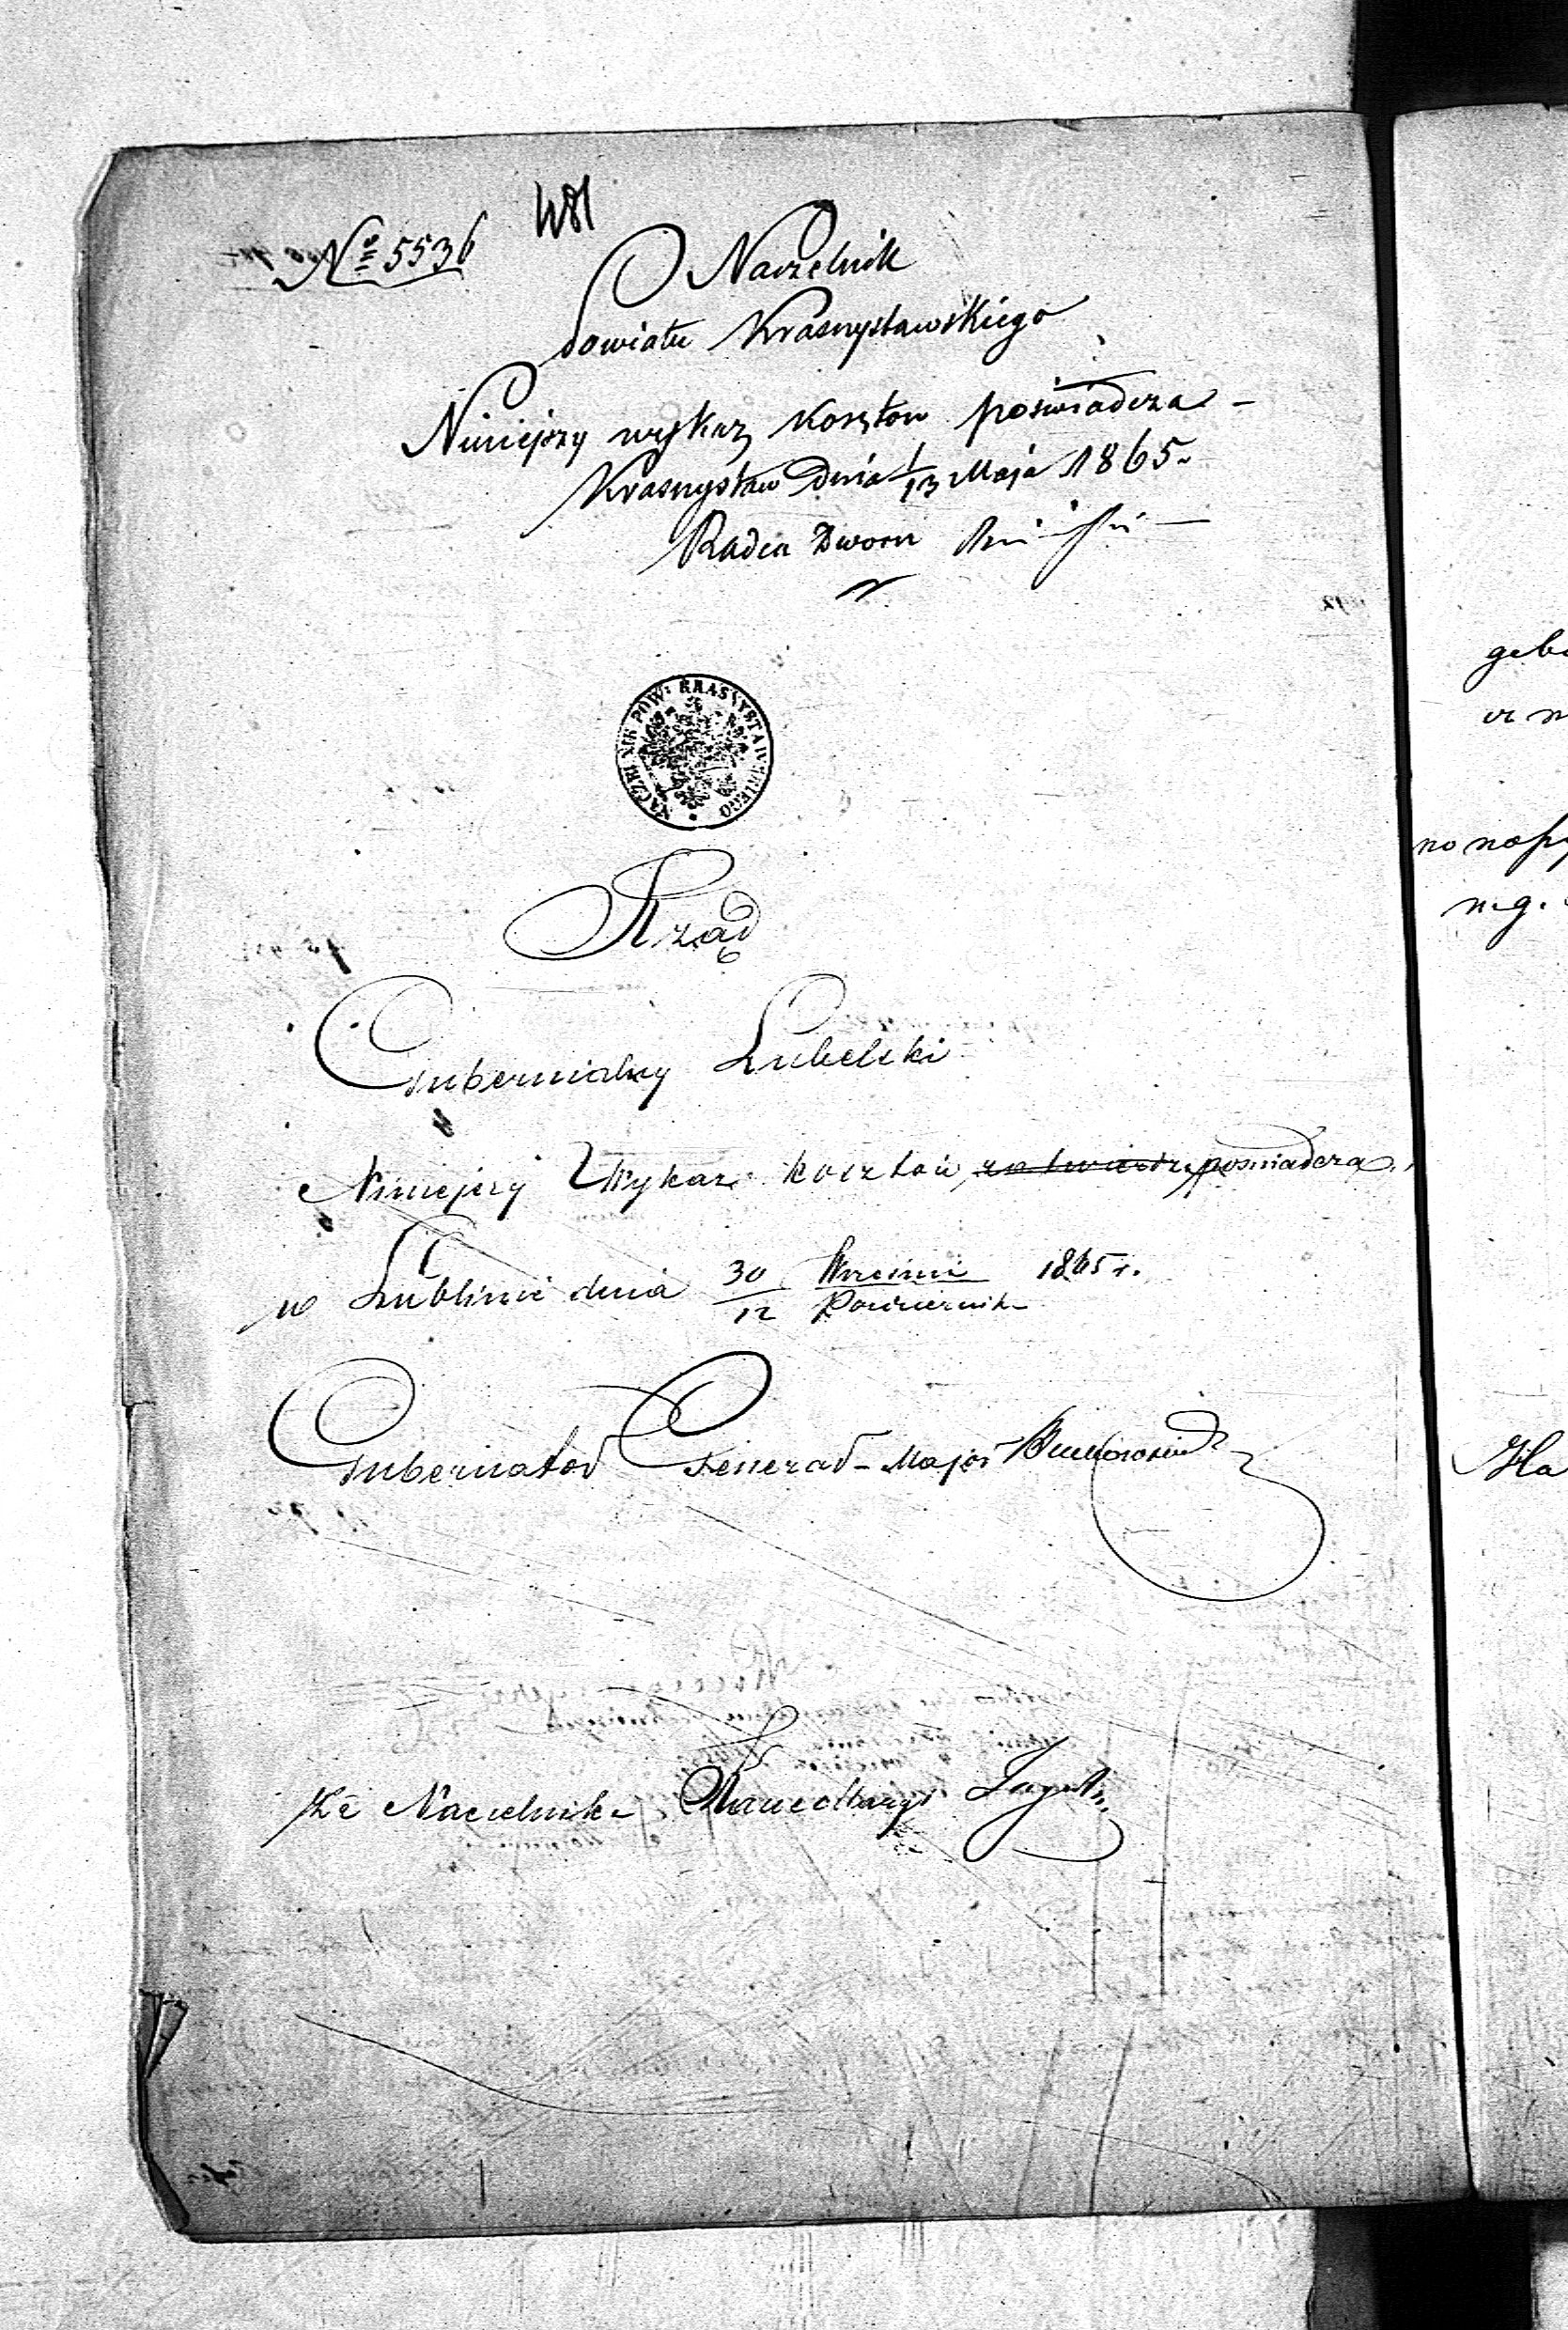 481
No 5536
Naczelnik
Powiatu Krasnystawskiego
Niniejszy wykaz kosztow poświadcza -
Krasnystaw Dnia 1/13 Maja 1865.
Radca Dworu
NACZELNIK POW: KRASNYSTAWSKIEGO
Rząd
Gubernialny Lubelski
Niniejszy Wykaz kosztów zatwierdza poświadcza.
w Lublinie dnia 30/12 Wrześni/Październik 1865 r.
Gubernator Generał-Major
Za Naczelnika Kancellaryi
geb
no
n.g.
На